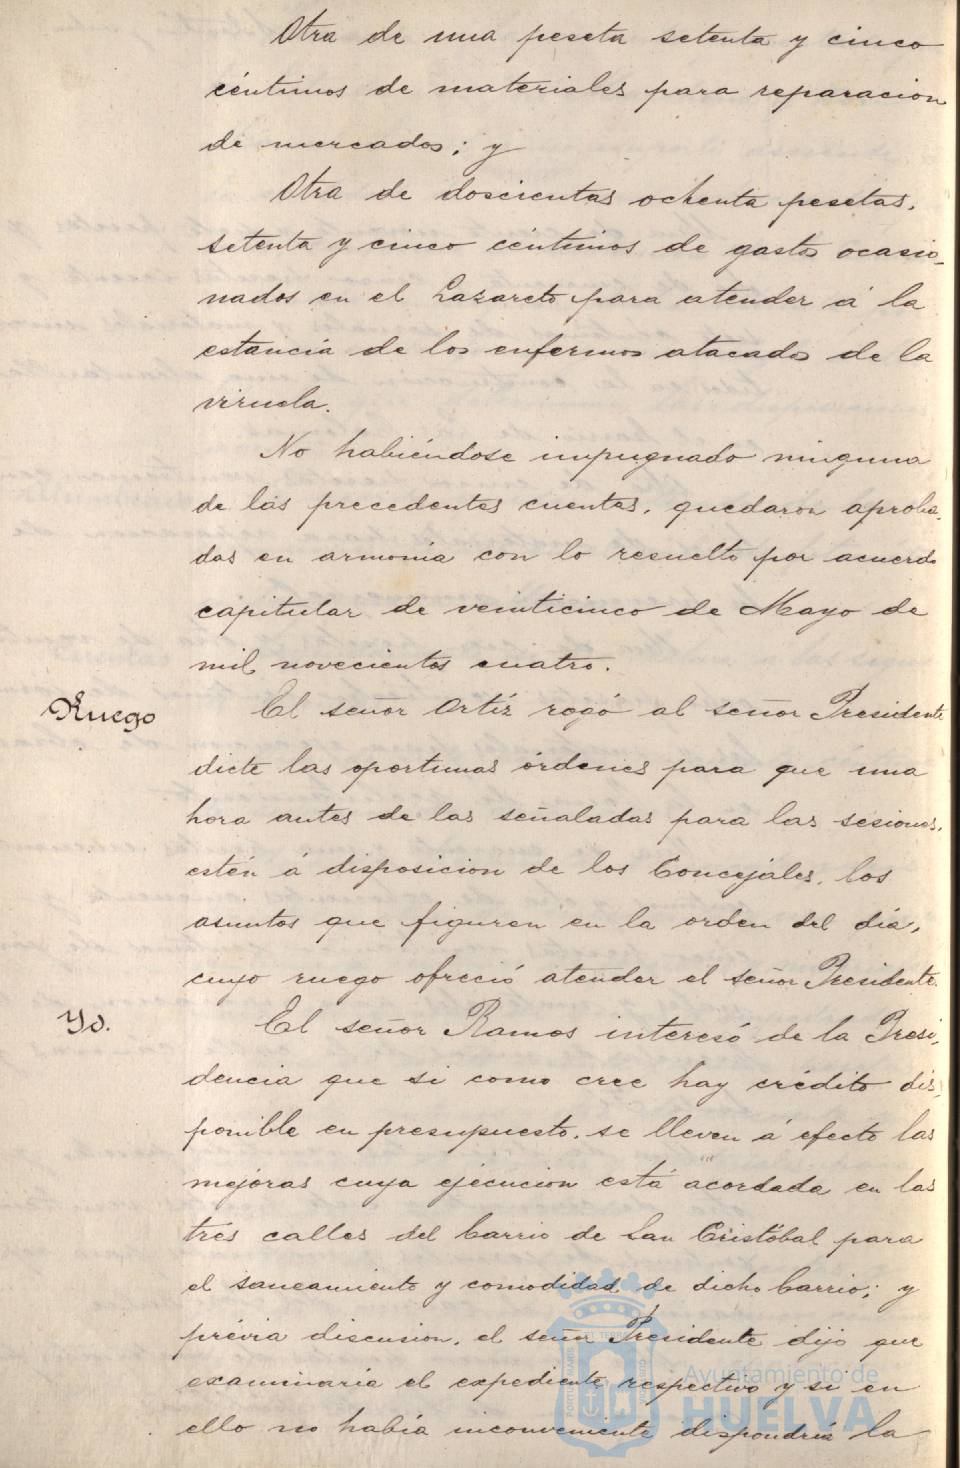 Otra de una peseta setenta y cinco
céntimos de materiales para reparacion
de mercados; y
Otra de doscientas ochenta pesetas,
setenta y cinco céntimos de gastos ocasio-
nados en el Lazareto para atender á la
estancia de los enfermos atacados de la
viruela.
No habiéndose impugnado ninguna
de las precedentes cuentas, quedaron aproba-
das en armonía con lo resuelto por acuerdo
capitular de veinticinco de Mayo de
mil novecientos cuatro.
Ruego
El señor Ortíz rogó al señor Presidente
dicte las oportunas órdenes para que una
hora antes de las señaladas para las sesiones,
estén á disposicion de los Concejales, los
asuntos que figuren en la orden del día,
cuyo ruego ofreció atender el señor Presidente.
Yd.
El señor Ramos interesó de la Presi-
dencia que si como cree hay crédito dis-
ponible en presupuesto, se lleven á efecto las
mejoras cuya ejecucion está acordada en las
tres calles del barrio de San Cristóbal para
el saneamiento y comodidad de dicho barrio; y
prévia discusion, el señor Presidente dijo que
examinaría el expediente respectivo y si en
ello no había inconveniente dispondría la
Ayuntamiento de
HUELVA